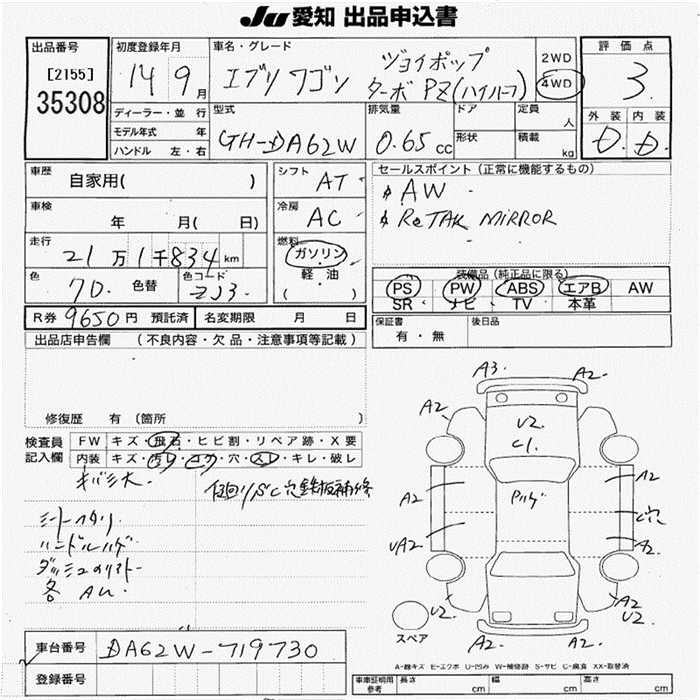 JU 愛知 出品申込書
出品番号
[2155]
35308
初度登録年月
14 9月
車名・グレード
エブリワゴン
ジョイポップ
ターボ PZ (ハイルーフ)
2WD
4WD
評価点
3
外装 内装
D. D.
ディーラー・並行
モデル年式 年
ハンドル 左・右
型式
GH-DA62W
排気量
0.65 cc
ドア
形状
定員
人
積載
kg
車歴
自家用( )
車検
年 月( 日)
走行
21万1千834km
色
7D. 色替
色コード
ZJ3.
シフト
AT
冷房
AC
燃料
ガソリン
軽・油
( )
セールスポイント(正常に機能するもの)
AW
ReTAK MIRROR
装備品(純正品に限る)
PS PW ABS エアB AW
SR ナビ TV 本革
R券 9650円 預託済 名変期限 月 日
保証書
有・無
後日品
出品店申告欄 (不良内容・欠品・注意事項等記載)
修復歴 有 (箇所 )
検査員
記入欄
FW キズ・飛石・ヒビ割・リペア跡・X要
内装 キズ・汚レ・コゲ・穴・スレ・キレ・破レ
キバミ大.
シートヘタリ.
ハンドルハゲ
各 AU.
A3. A2-
A2 A2
U2.
C1.
A2 A1
Pハゲ
C穴
UA2 A2
U2- A2
U2
A2- A2-
スペア
A-線キズ E-エクボ U-凹み W-補修跡 S-サビ C-腐食 XX-取替済
車台番号 DA62W-719730
登録番号
車庫証明用
参考
長さ cm 幅 cm 高さ cm